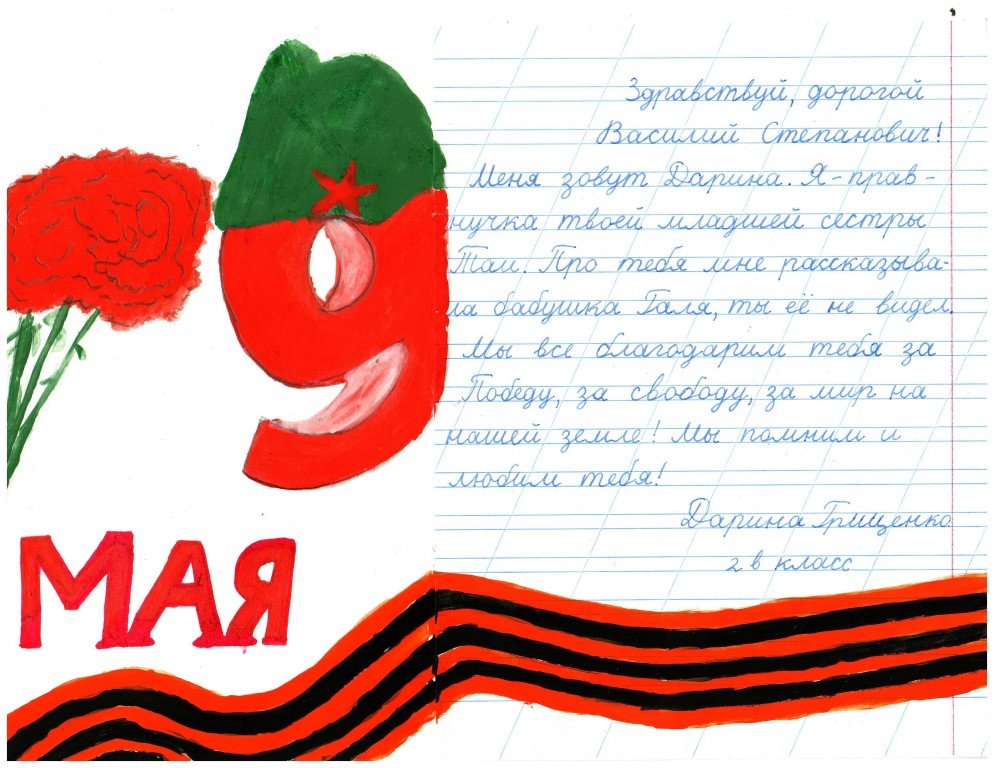 9
МАЯ
Здравствуй, дорогой
Василий Степанович!
Меня зовут Дарина. Я - прав-
нучка твоей младшей сестры
Таи. Про тебя мне рассказыва-
ла бабушка Галя, ты её не видел.
Мы все благодарим тебя за
Победу, за свободу, за мир на
нашей земле! Мы помним и
любим тебя!
Дарина Грищенко
2 в класс